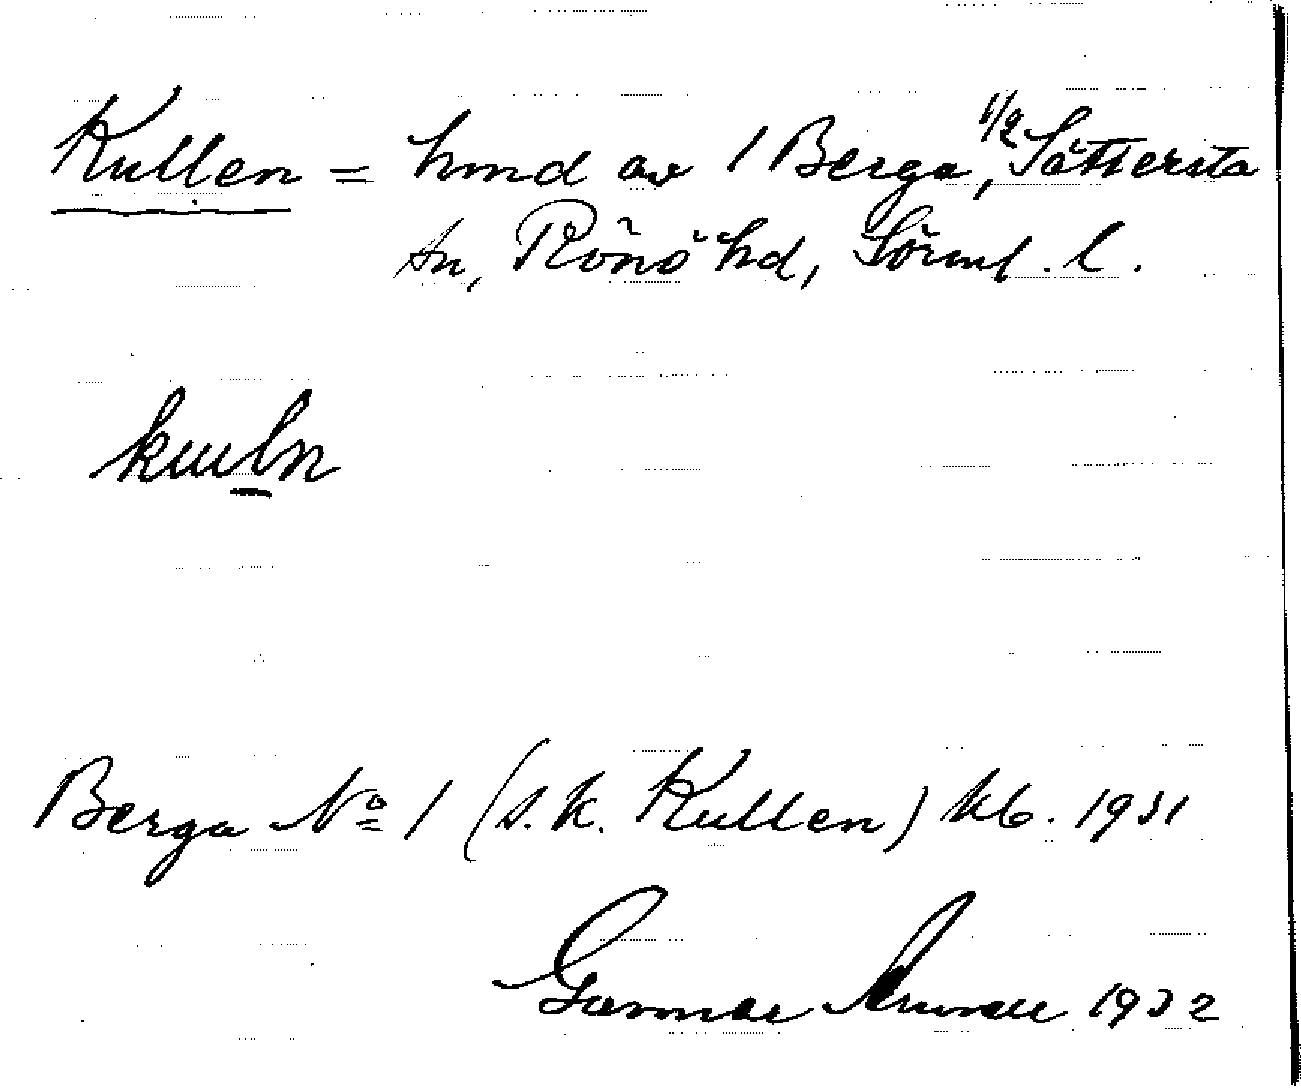 Kullen = hmd av 1 Berga, 1/2 Sättersta
sn, Rönö hd, Sörml. l.
kuuln
Berga No 1 (s.k. Kullen) kb. 1931
Gunnar 1932